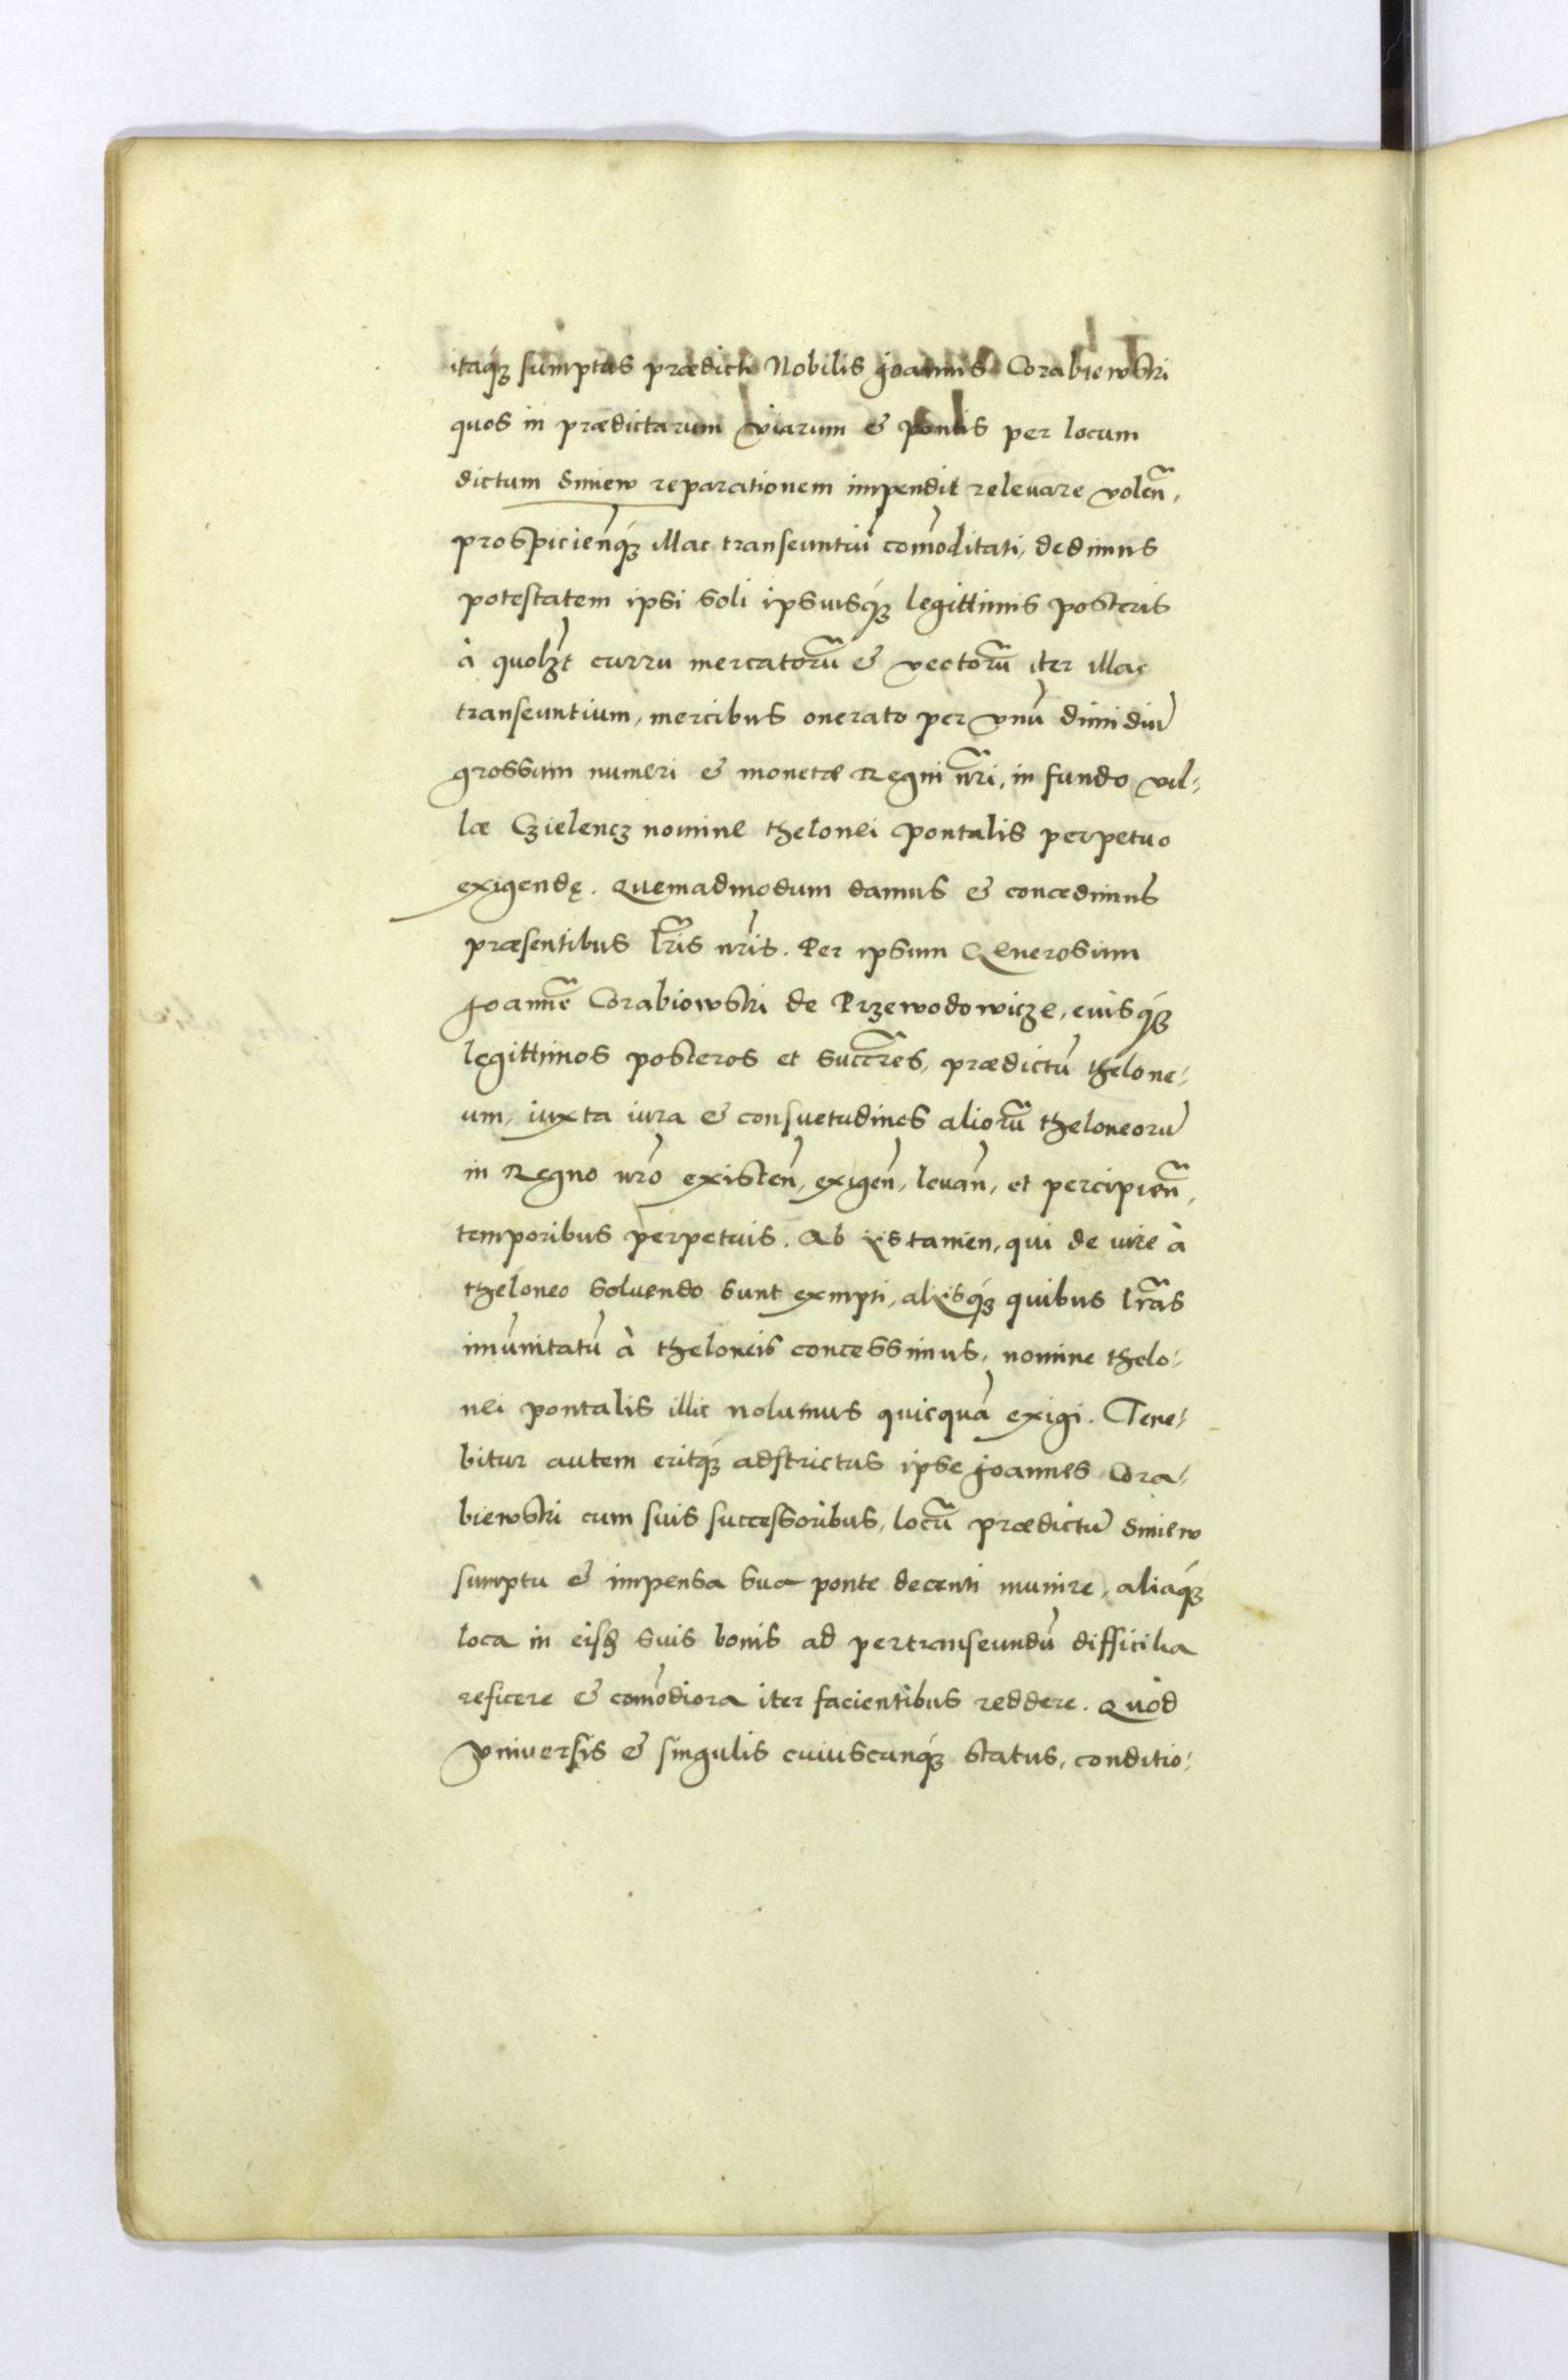 itaq́ꝫ sumptus prædicti Nobilis Joannis Corabiewski
quos in prædictarum viarum & pontis per locum
dictum Smiew reparationem impendit releuare volen̄,
prospicien̄q́ꝫ illac transeuntiū com̄oditati, dedimus
potestatem ipsi soli ipsiusq́ꝫ legittimis posteris
à quolꝫt curru mercatorū & vectorū iter illac
transeuntium, mercibus onerato per vnū dimidiū
grossum numeri & monetæ Regni nr̄i, in fundo vil⸗
læ Czielencz nomine thelonei pontalis perpetuo
exigendę. Quemadmodum damus & concedimus
præsentibus lr̄is nr̄is. Per ipsum Generosum
Joannē Corabiowski de Przewodowicze, eiusq́ꝫ
legittimos posteros et succr̄es, prædictū thelone⸗
um, iuxta iura & consuetudines aliorū theloneorū
in Regno nr̄o existen̄, exigen̄, leuan̄, et percipien̄,
temporibus perpetuis. Ab ijs tamen, qui de iure à
theloneo soluendo sunt exmpti, alijsq́ꝫ quibus lr̄as
im̄unitatū à theloneis concessimus, nomine thelo⸗
nei pontalis illic nolumus quicquā exigi. Tene⸗
bitur autem eritq́ꝫ adstrictus ipse Joannes Cora⸗
biewski cum suis successoribus, locū prædictū Smiew
sumptu & impensa sua ponte decenti munire, aliaq́ꝫ
loca in eisḏ suis bonis ad pertranseundū difficilia
reficere & com̄odiora iter facientibus reddere. Quòd
vniuersis & singulis cuiuscunq́ꝫ status, conditio⸗